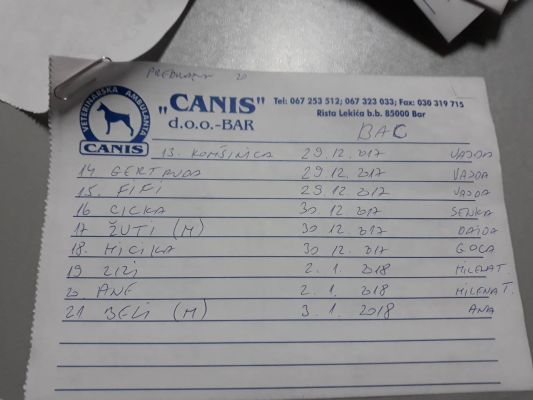 PREDRAČUN 20
VETERINARSKA AMBULANTA
CANIS
"CANIS"
d.o.o.-BAR
Tel: 067 253 512; 067 323 033; Fax: 030 319 715
Rista Lekića b.b. 85000 Bar
BAC
13. KOMŠINICA 29.12.2017 VAJDA
14. GERTRUDA 29.12.2017 VAJDA
15. FIFI 29.12.2017 VAJDA
16 CICKA 30 12.2017 SENKA
17 ŽUTI (M) 30 12.2017 DAJDA
18. MICIKA 30 12.2017 GOCA
19 ZIZI 2.1.2018 MILENA T.
20. ANE 2.1.2018 MILENA T.
21 BELI (M) 3.1.2018 ANA